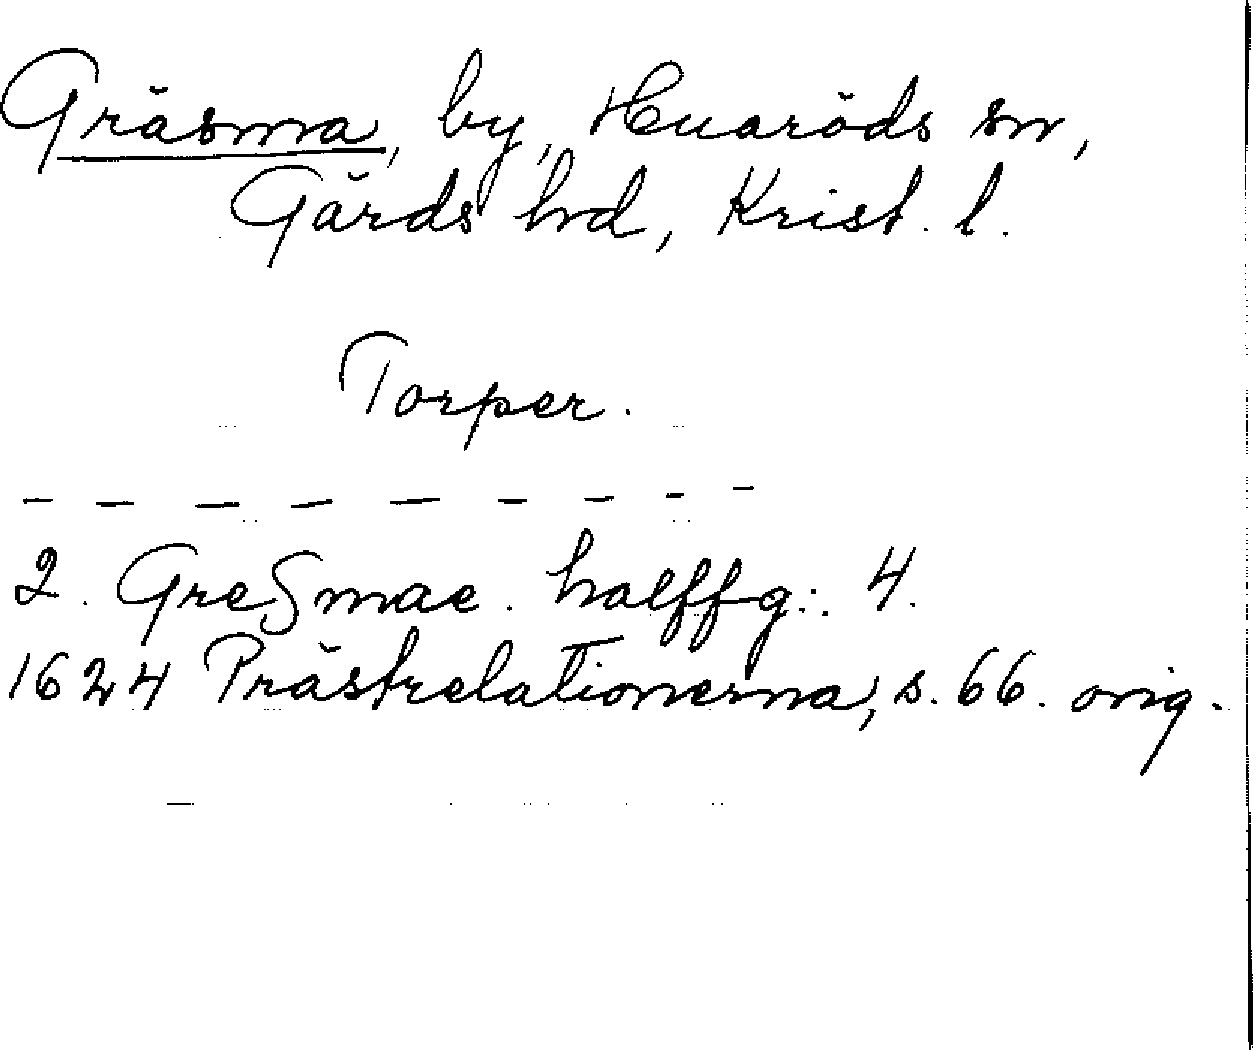 Gräsma, by, Huaröds sn,
Gärds hd, Krist. l.
Torper.
— — — — — — — — —
2. Greſmae. halffg:. 4.
1624 Prästrelationerna, s. 66. orig.